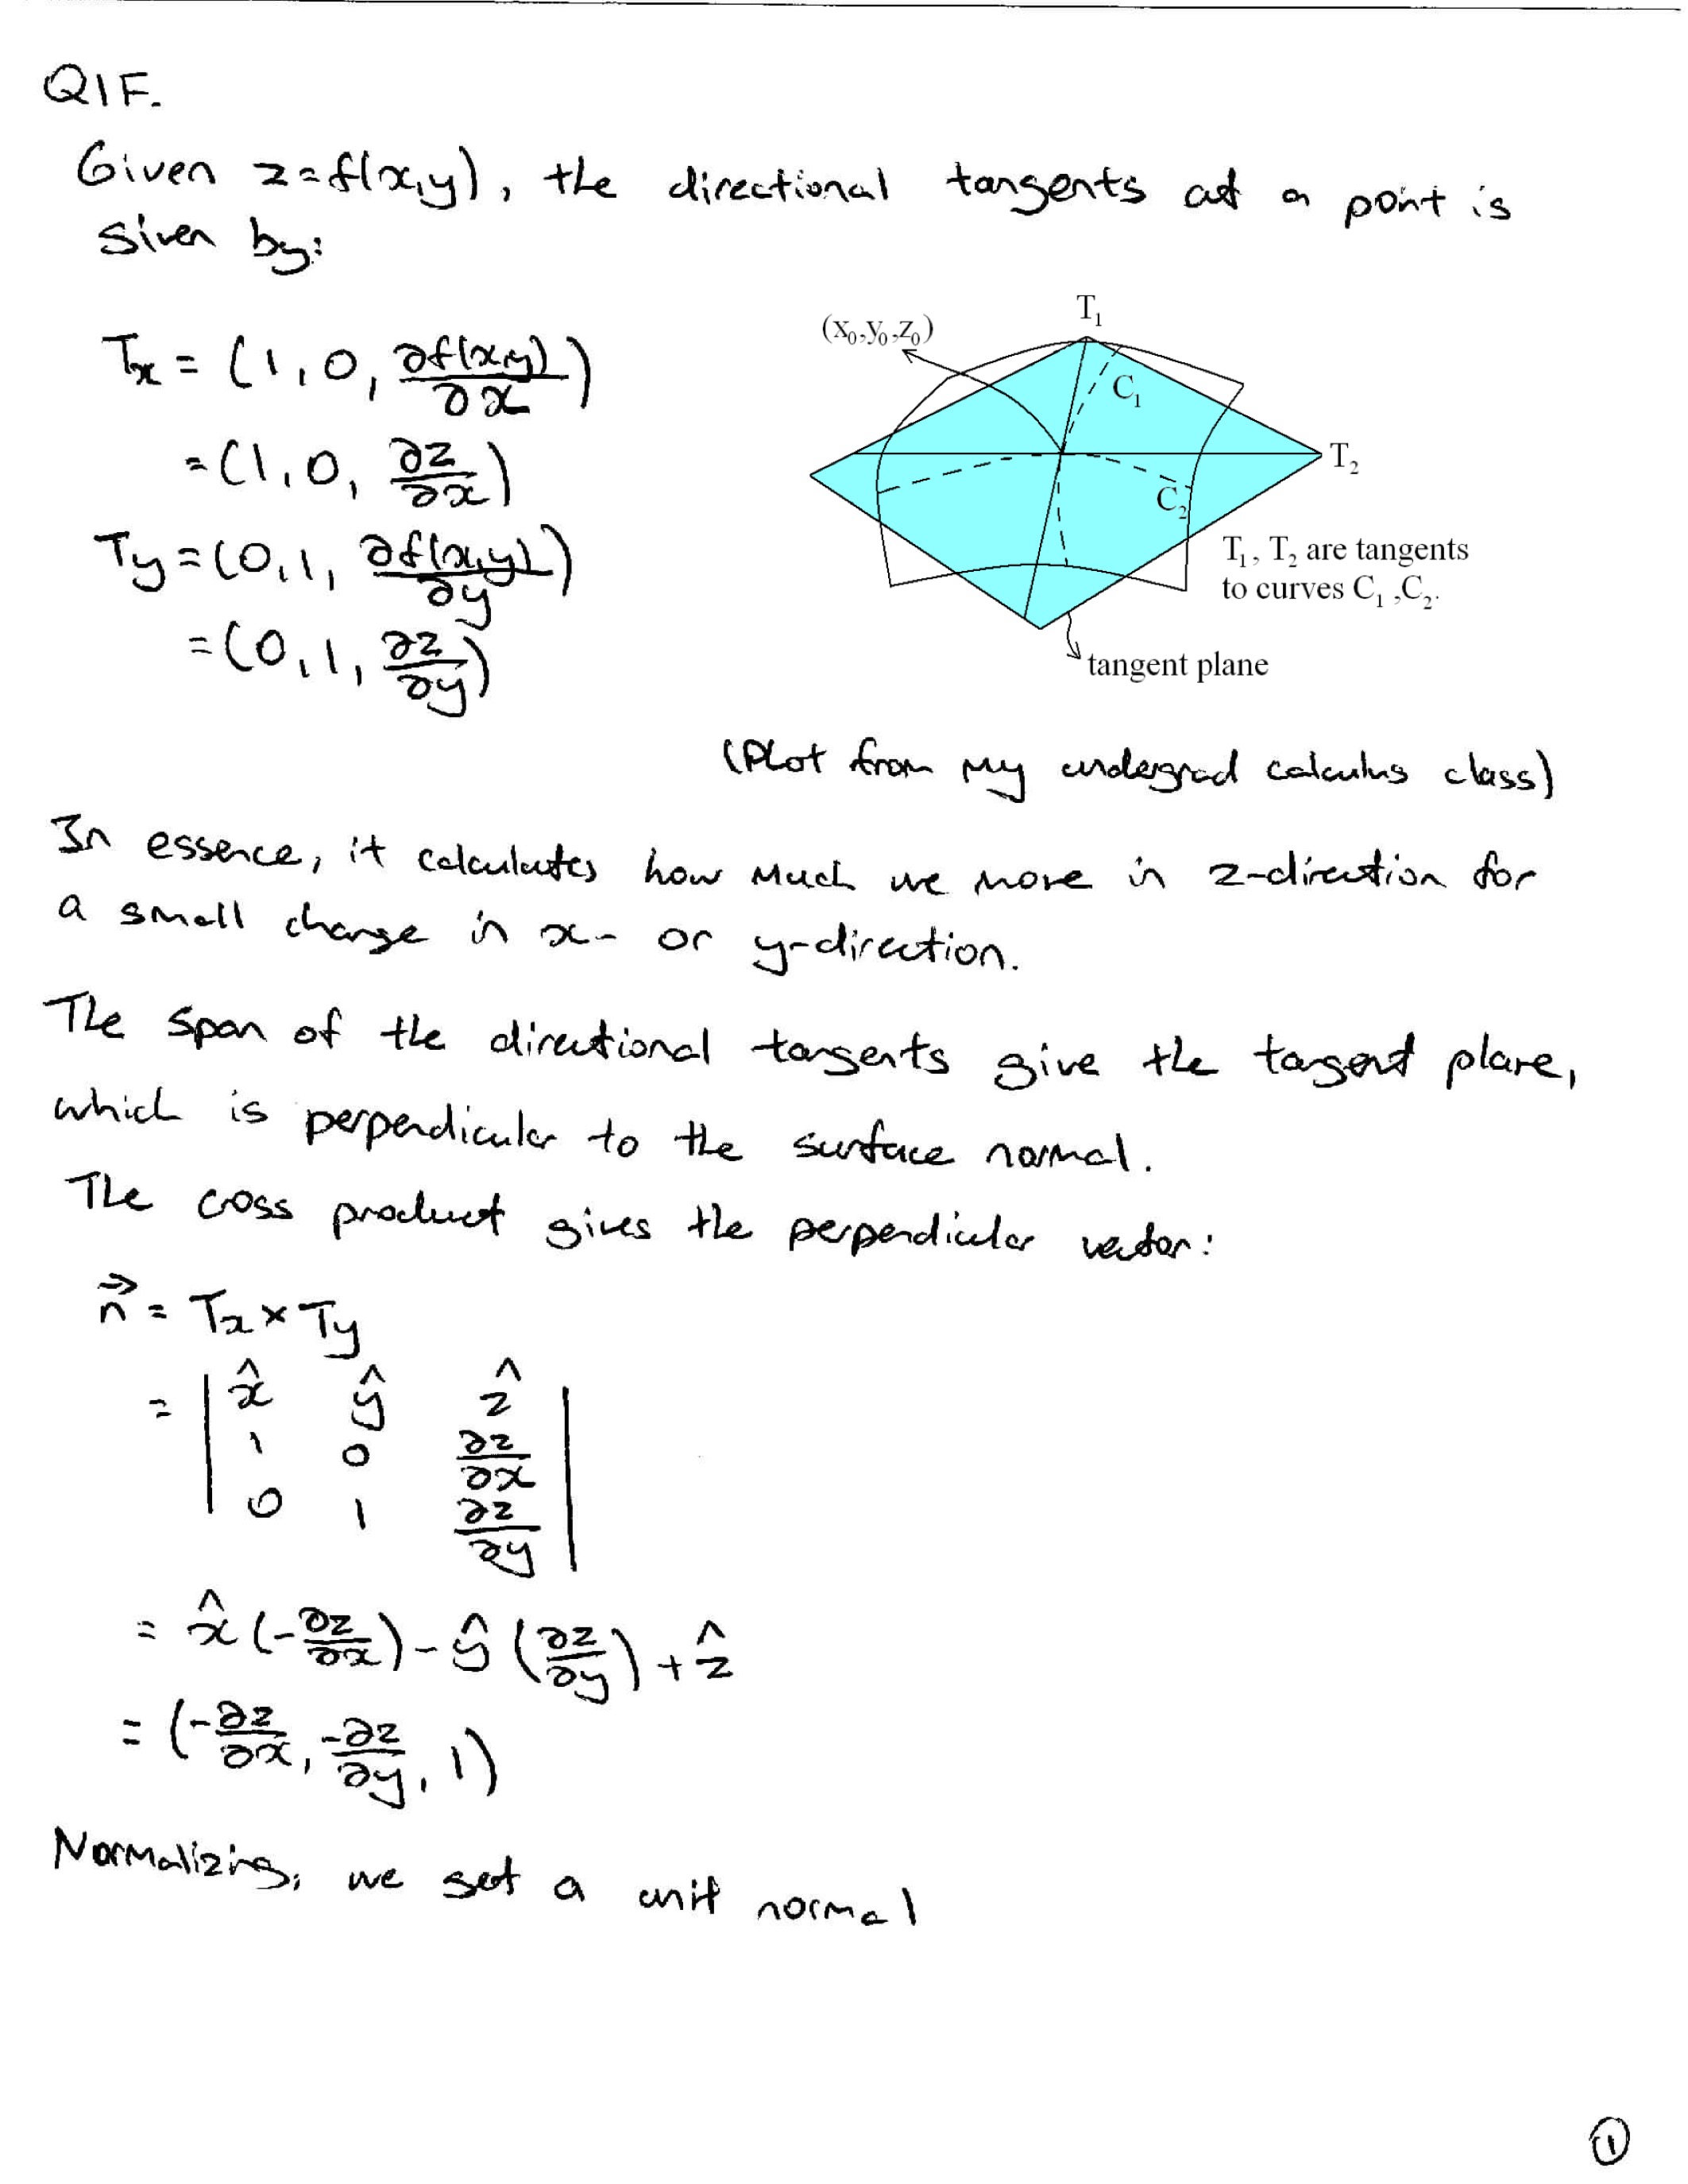 Q1F.
Given z=f(x,y), the directional tangents at a point is
given by:
Tx = (1, 0, ∂f(x,y)/∂x)
= (1, 0, ∂z/∂x)
Ty = (0, 1, ∂f(x,y)/∂y)
= (0, 1, ∂z/∂y)
T₁
(x₀,y₀,z₀)
C₁
T₂
C₂
T₁, T₂ are tangents
to curves C₁ ,C₂.
tangent plane
(Plot from my undergrad calculus class)
In essence, it calculates how much we move in z-direction for
a small change in x- or y-direction.
The span of the directional tangents give the tangent plane,
which is perpendicular to the surface normal.
The cross product gives the perpendicular vector:
n⃗ = Tx × Ty
= | x̂ ŷ ẑ |
1 0 ∂z/∂x
0 1 ∂z/∂y
= x̂ (-∂z/∂x) - ŷ (∂z/∂y) + ẑ
= (-∂z/∂x, -∂z/∂y, 1)
Normalizing, we get a unit normal
①